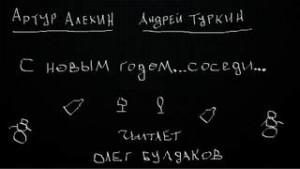 Артур Алехин Андрей Туркин
С новым годом...соседи...
читает
Олег Булдаков